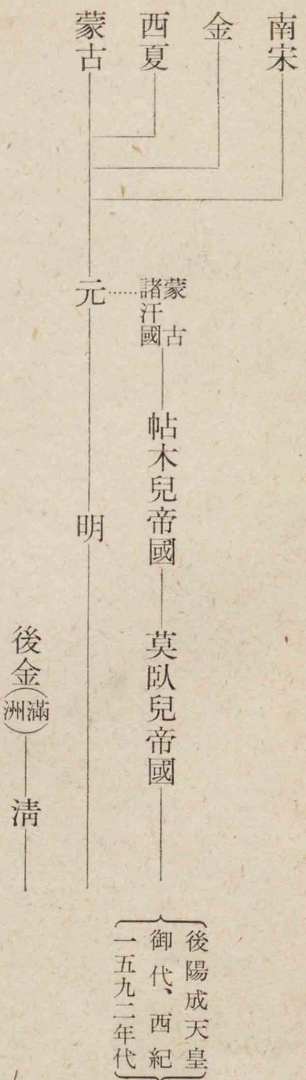 南宋
金
西夏
蒙古
蒙古
諸汗國
元
帖木兒帝國
莫臥兒帝國
明
後金(滿洲)
清
後陽成天皇
御代、西紀
一五九二年代